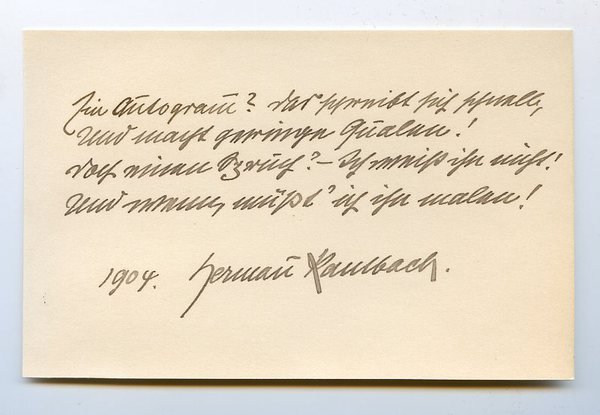 Ein Autogram̅? das schreibt sich schnell,
Und macht geringe Qualen!
doch einen Spruch? – Ich weiß ihn nicht!
Und wenn, müßt' ich ihn malen!
1904. Herman̅ Kaulbach.